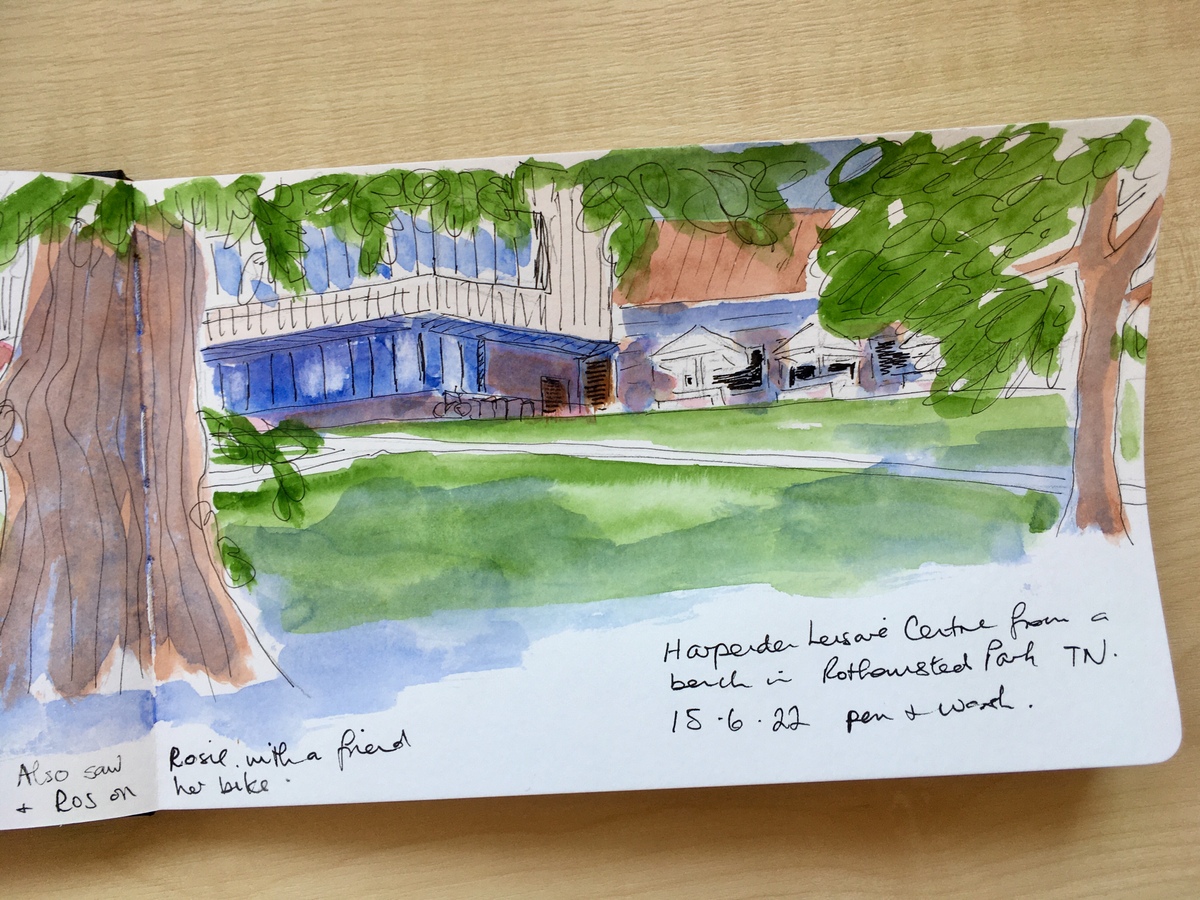 Harpenden Leisure Centre from a
bench in Rothamsted Park TN.
15.6.22 pen + wash.
Also saw Rosie with a friend
+ Ros on her bike.